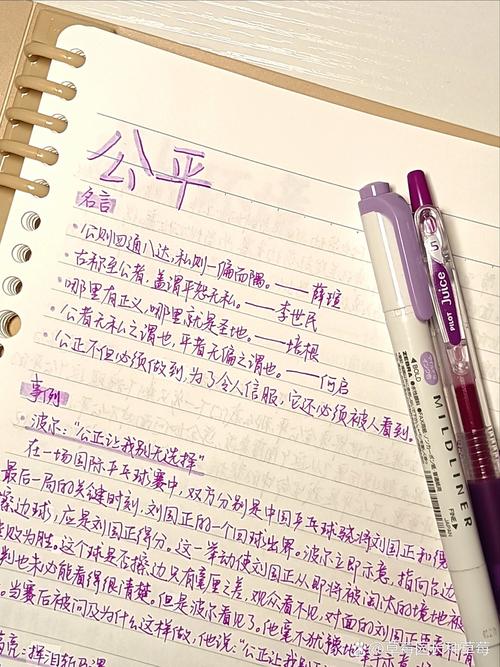 公平
名言
·公则四通八达,私则一偏而隅。——薛瑄
·古称至公者,盖谓平恕无私。——李世民
·哪里有正义,哪里就是圣地。——培根
·公者无私之谓也,平者无偏之谓也。——何启
·公正不但必须做到,为了令人信服,它还必须被人看到。
事例
·波尔:“公正让我别无选择”
在一场国际乒乓球赛中,双方分别是中国乒乓球骁将刘国正和
最后一局的关键时刻,刘国正的一个回球出界。波尔立即示意,指向台边
擦边球,应是刘国正得分。这一举动使刘国正从即将被淘汰的境地被
败为胜。这个球是否擦边只有毫厘之差,观众看不见,对面的刘国正
判也未必能看得很清楚。但是波尔看见了。他毫不犹豫地
。当赛后被问及为什么这样做,他说:“公正让我别
亮:挥泪斩马谡
PILOT Juice
5
ZEBRA
MILDLINER
BOLD
FINE
JAPAN
@草莓网农科草莓